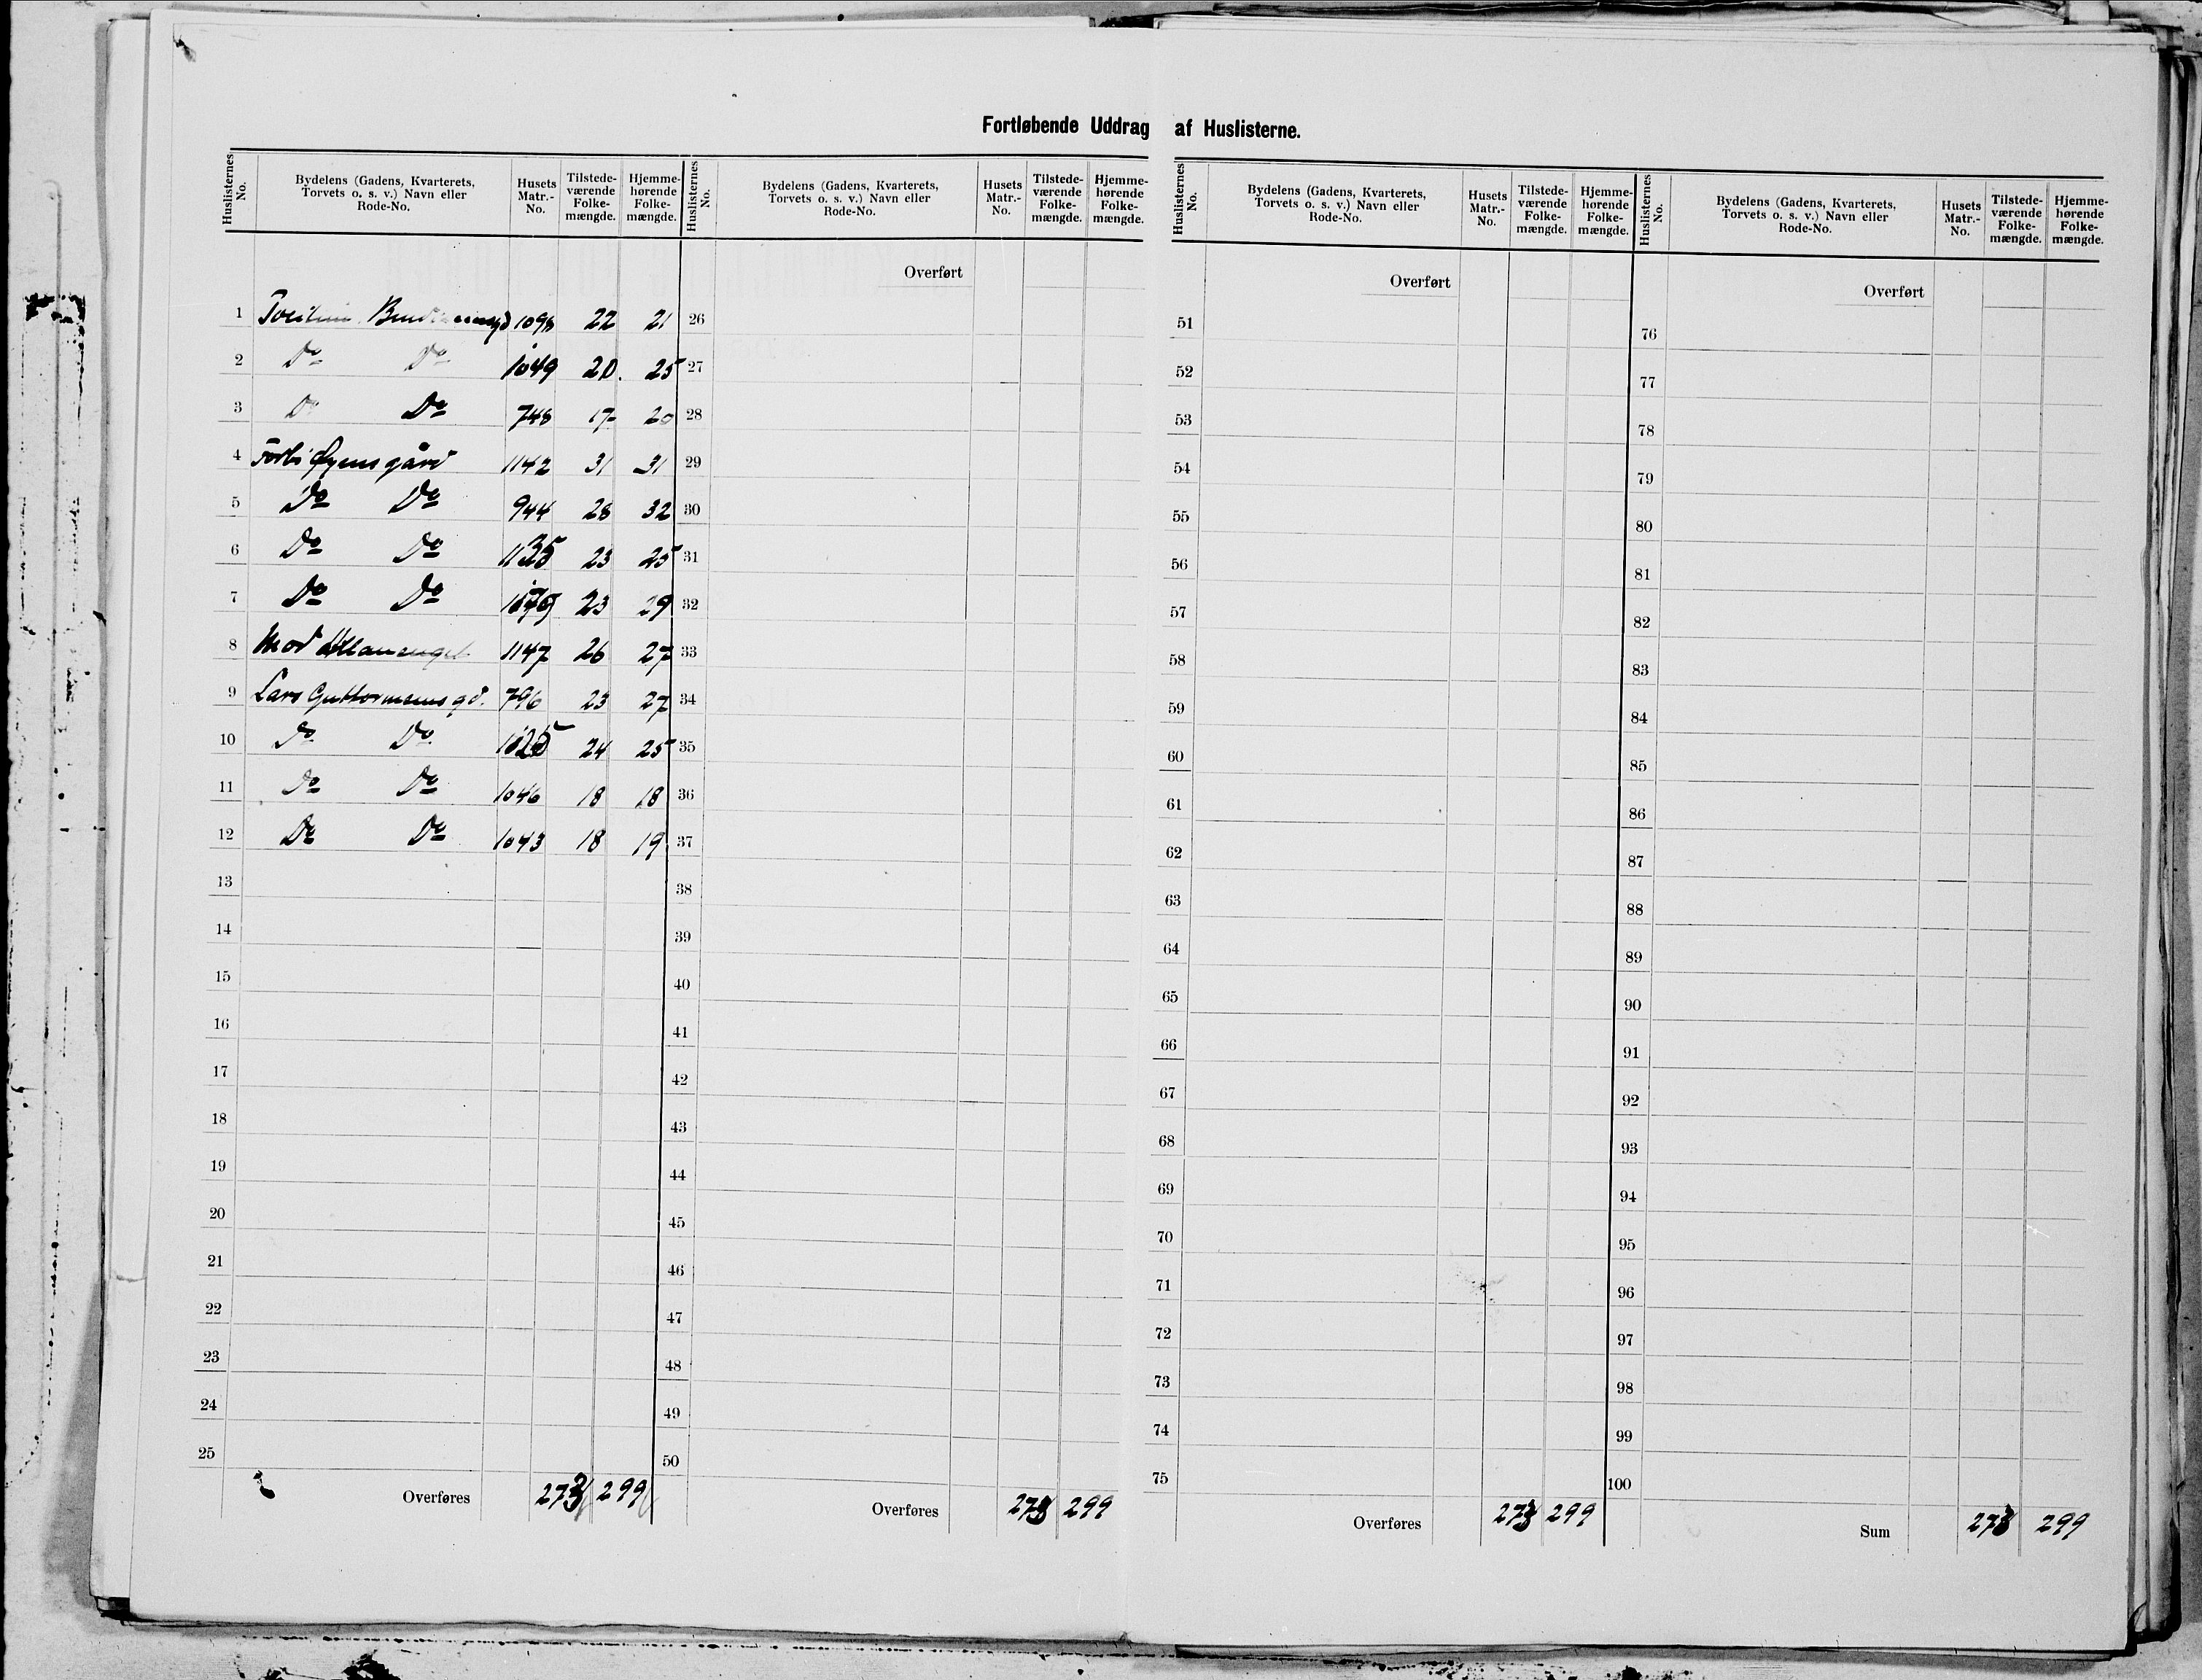 Fortløbende Uddrag af Huslisterne.
Huslisternes No. Bydelens (Gadens, Kvarterets, Torvets o. s. v.) Navn eller Rode-No. Husets Matr.-No. Tilstedeværende Folkemængde. Hjemmehørende Folkemængde.
1 1098 22 21
2 Do Do 1049 20. 25
3 Do Do 748 17 20
4 Forbi Øyens gård 1142 31 31
5 Do Do 944 28 32
6 Do Do 1135 23 25
7 Do Do 1079 23 29
8 Mod 1147 26 27
9 Lars Guttormsens gd. 796 23 27
10 Do Do 1025 24 25
11 Do Do 1046 18 18
12 Do Do 1043 18 19
13
14
15
16
17
18
19
20
21
22
23
24
25
Overføres 273 299
Huslisternes No. Bydelens (Gadens, Kvarterets, Torvets o. s. v.) Navn eller Rode-No. Husets Matr.-No. Tilstede-værende Folke-mængde. Hjemme-hørende Folke-mængde.
Overført
26
27
28
29
30
31
32
33
34
35
36
37
38
39
40
41
42
43
44
45
46
47
48
49
50
Overføres 273 299
Huslisternes No. Bydelens (Gadens, Kvarterets, Torvets o. s. v.) Navn eller Rode-No. Husets Matr.-No. Tilstede-værende Folke-mængde. Hjemme-hørende Folke-mængde.
Overført
51
52
53
54
55
56
57
58
59
60
61
62
63
64
65
66
67
68
69
70
71
72
73
74
75
Overføres 273 299
Huslisternes No. Bydelens (Gadens, Kvarterets, Torvets o. s. v.) Navn eller Rode-No. Husets Matr.-No. Tilstede-værende Folke-mængde. Hjemme-hørende Folke-mængde.
Overført
76
77
78
79
80
81
82
83
84
85
86
87
88
89
90
91
92
93
94
95
96
97
98
99
100
Sum 273 299